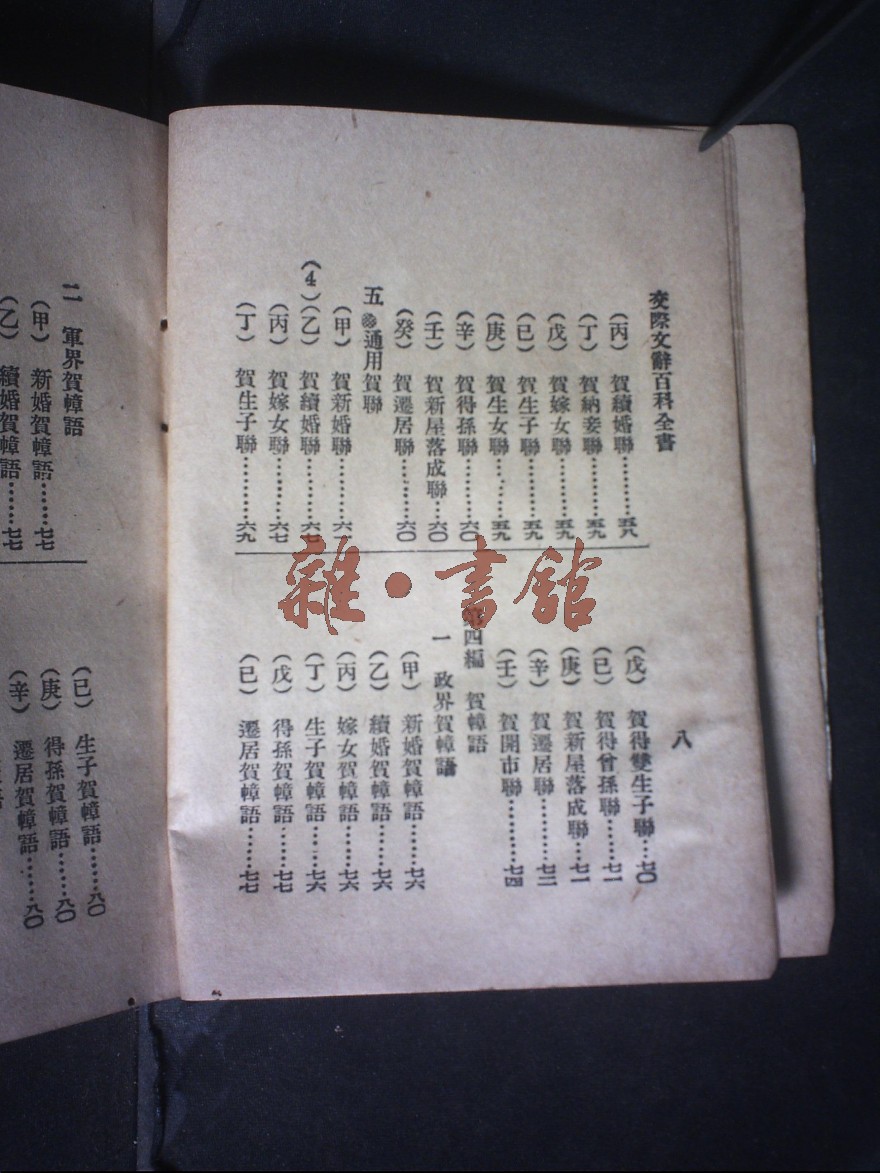 交際文辭百科全書
(丙) 賀續婚聯………五八
(丁) 賀納妾聯………五九
(戊) 賀嫁女聯………五九
(已) 賀生子聯………五九
(庚) 賀生女聯………五九
(辛) 賀得孫聯………六〇
(壬) 賀新屋落成聯…六〇
(癸) 賀遷居聯………六〇
五 通用賀聯
(甲) 賀新婚聯………六一
(4)(乙) 賀續婚聯………六七
(丙) 賀嫁女聯………六七
(丁) 賀生子聯………六九
八
(戊) 賀得雙生子聯…七〇
(已) 賀得曾孫聯……七一
(庚) 賀新屋落成聯…七一
(辛) 賀遷居聯………七二
(壬) 賀開市聯………七四
第四編 賀幛語
一 政界賀幛語
(甲) 新婚賀幛語……七六
(乙) 續婚賀幛語……七六
(丙) 嫁女賀幛語……七六
(丁) 生子賀幛語……七六
(戊) 得孫賀幛語……七七
(已) 遷居賀幛語……七七
二 軍界賀幛語
(甲) 新婚賀幛語……七七
(乙) 續婚賀幛語……七七
(已) 生子賀幛語……八〇
(庚) 得孫賀幛語……八〇
(辛) 遷居賀幛語……八〇
雜·書館